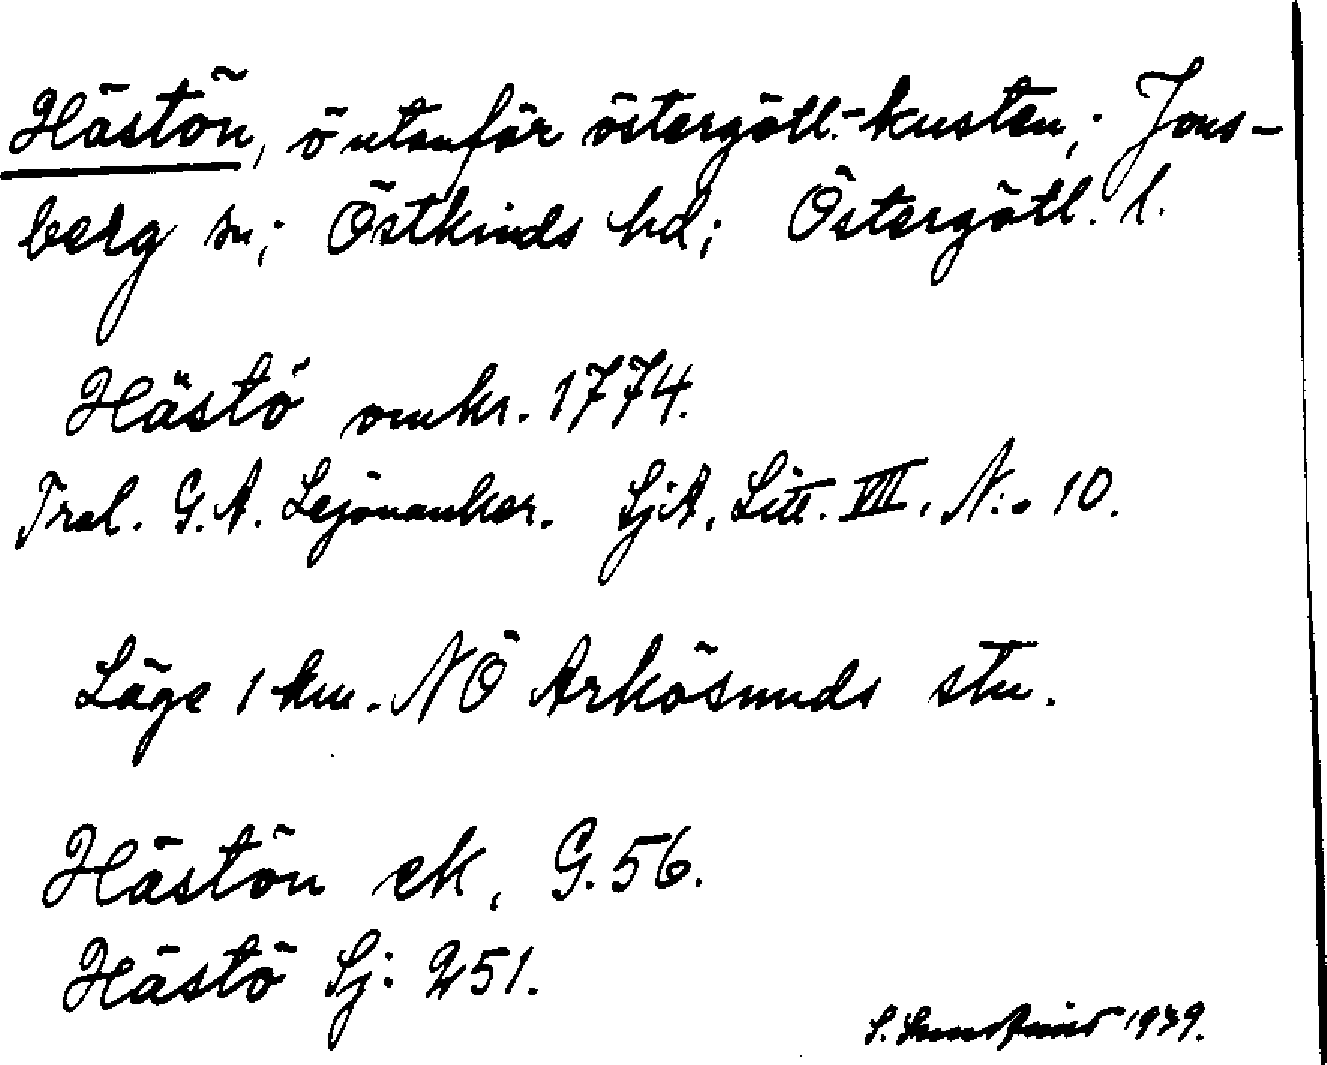 Hästön, ö utanför östergötl.-kusten; Jons-
berg sn; Östkinds hd; Östergötl. l.
Hästö omkr. 1774.
Tral. G. A. Lejonanker. SjA, Litt. VIII, N:o 10.
Läge 1 km. NÖ Arkösunds stn.
Hästön ek, G. 56.
Hästö Sj: 251.
S. 1939.